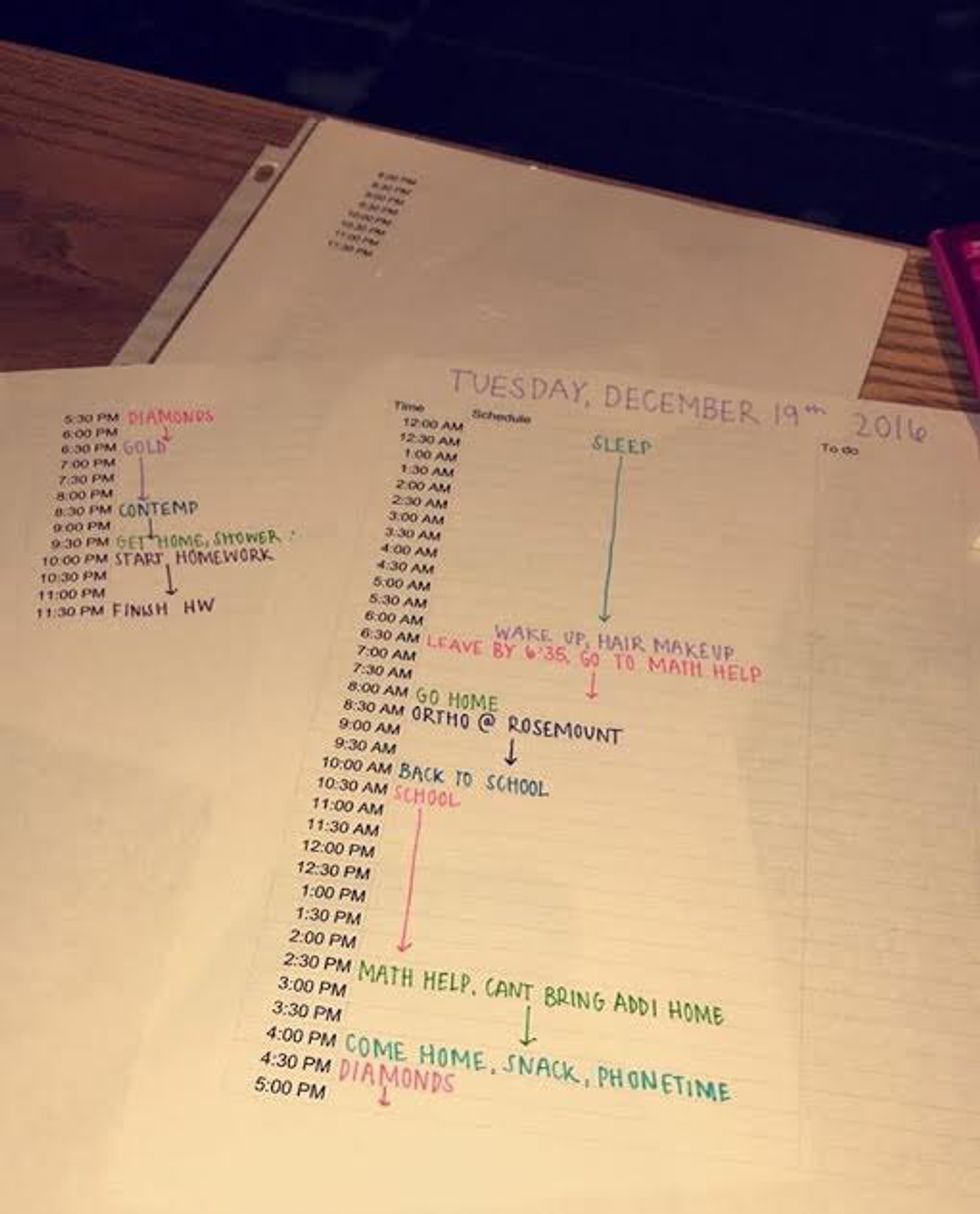 8:00 PM
8:30 PM
9:00 PM
9:30 PM
10:00 PM
10:30 PM
11:00 PM
11:30 PM
5:30 PM DIAMONDS
6:00 PM
6:30 PM GOLD
7:00 PM
7:30 PM
8:00 PM
8:30 PM CONTEMP
9:00 PM
9:30 PM GET HOME, SHOWER
10:00 PM START HOMEWORK
10:30 PM
11:00 PM
11:30 PM FINISH HW
TUESDAY, DECEMBER 19th 2016
Time Schedule To do
12:00 AM
12:30 AM SLEEP
1:00 AM
1:30 AM
2:00 AM
2:30 AM
3:00 AM
3:30 AM
4:00 AM
4:30 AM
5:00 AM
5:30 AM
6:00 AM WAKE UP, HAIR MAKEUP
6:30 AM LEAVE BY 6:35, GO TO MATH HELP
7:00 AM
7:30 AM
8:00 AM GO HOME
8:30 AM ORTHO @ ROSEMOUNT
9:00 AM
9:30 AM
10:00 AM BACK TO SCHOOL
10:30 AM SCHOOL
11:00 AM
11:30 AM
12:00 PM
12:30 PM
1:00 PM
1:30 PM
2:00 PM
2:30 PM MATH HELP. CANT BRING ADDI HOME
3:00 PM
3:30 PM
4:00 PM COME HOME, SNACK, PHONETIME
4:30 PM DIAMONDS
5:00 PM